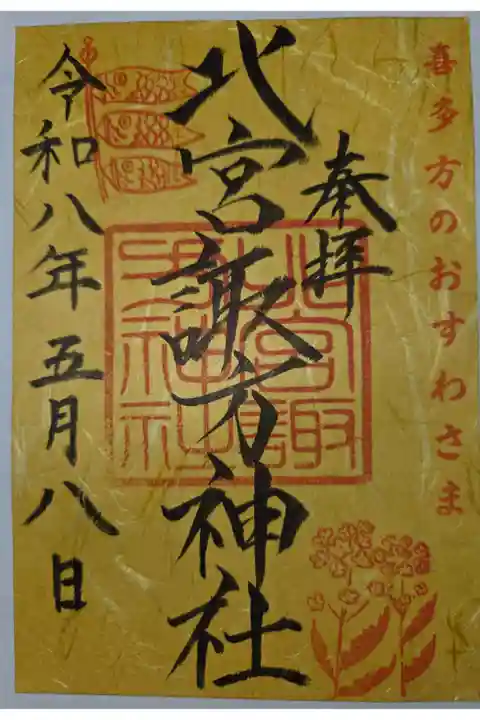 喜多方のおすわさま
奉拝
北宮諏方神社
北宮諏
方神社
令和八年五月八日